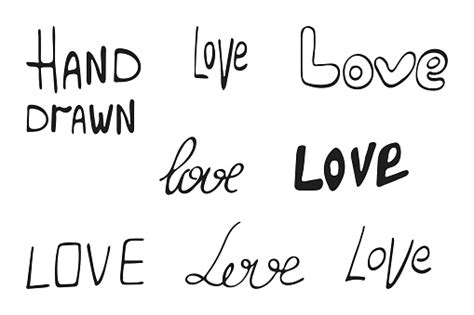 HAND
DRAWN
Love
Love
love
LOVE
LOVE
Love
Love